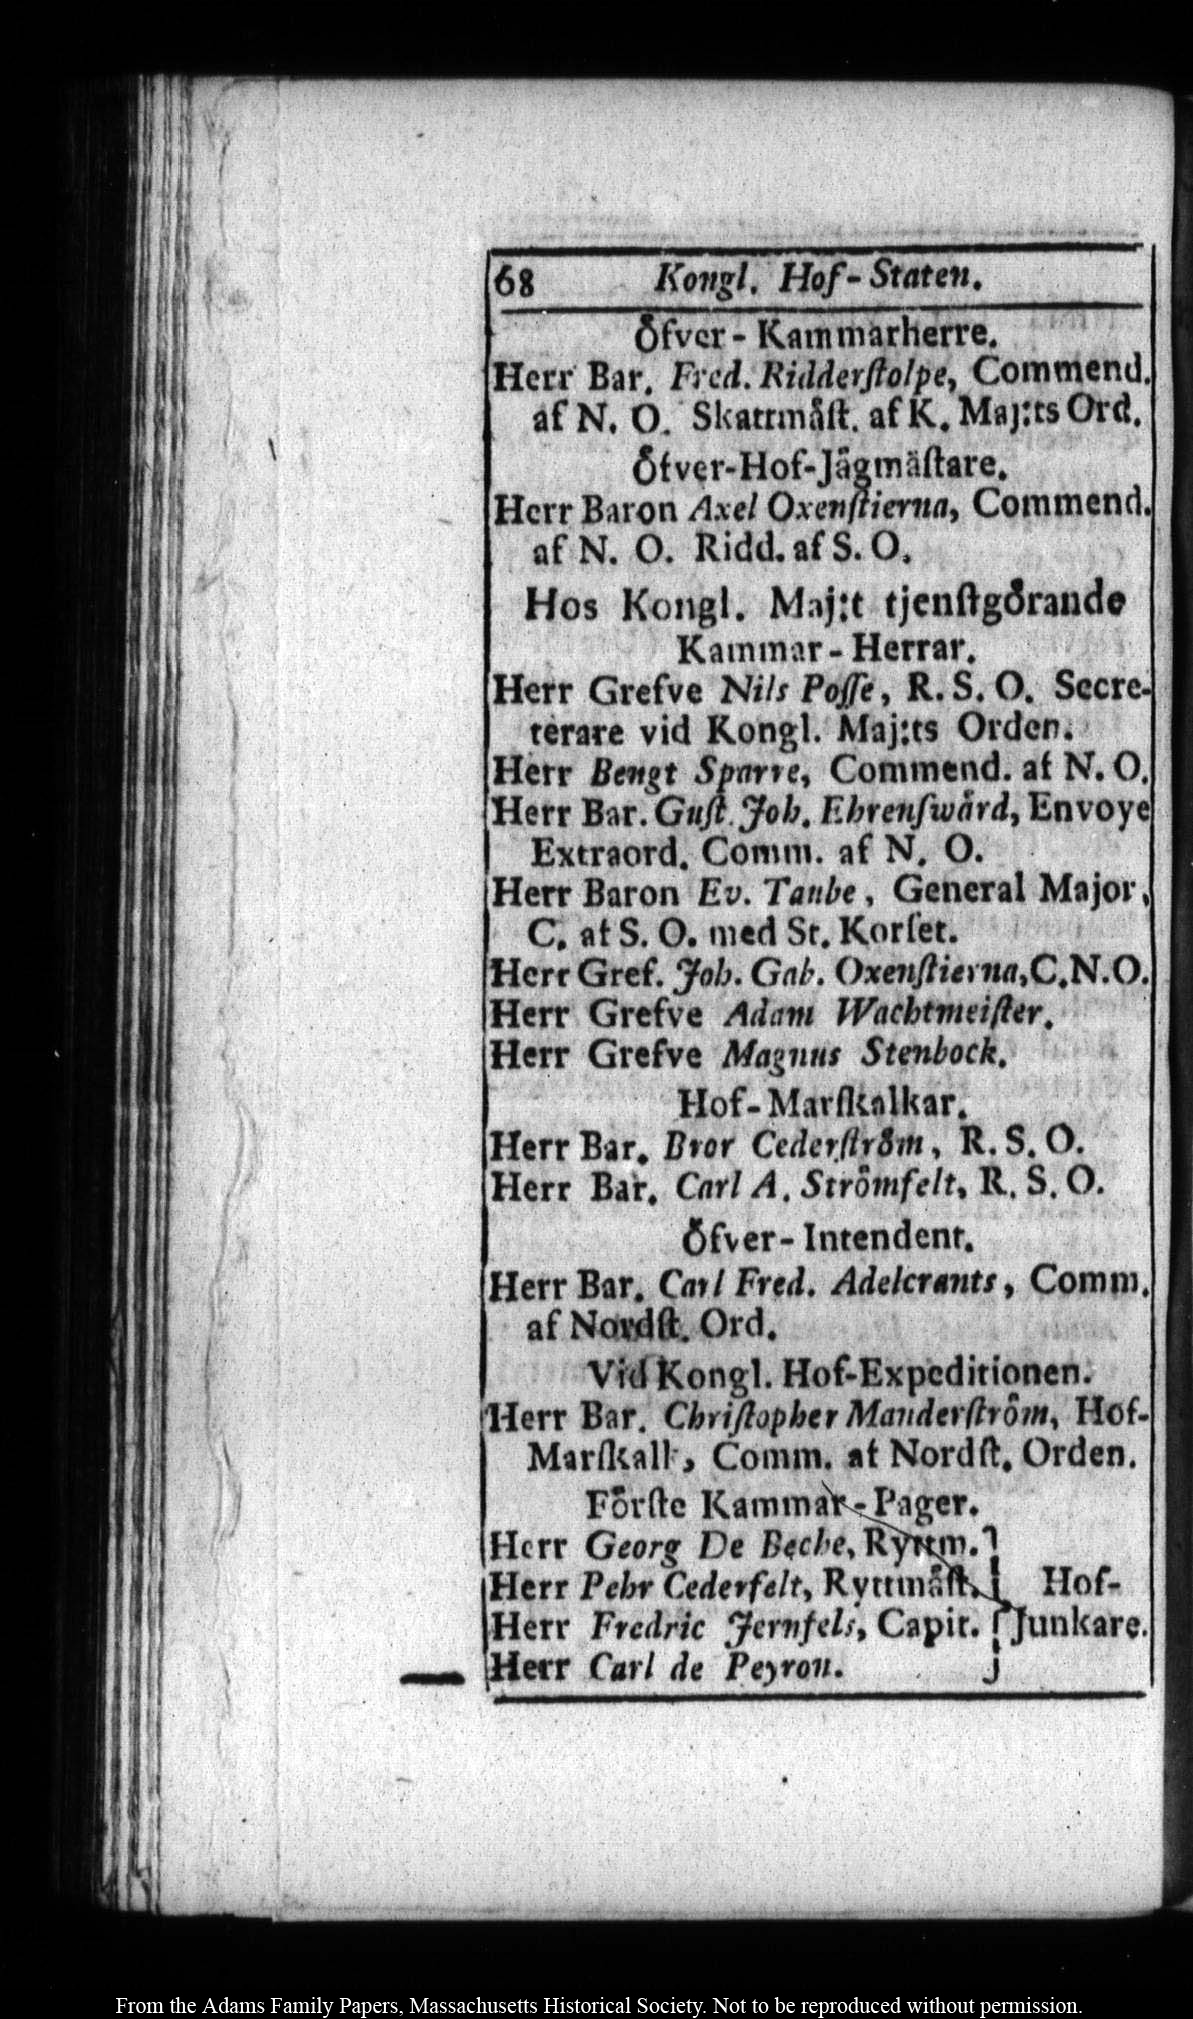 68 Kongl. Hof-Staten.
Öfver-Kammarherre.
Herr Bar. Fred. Ridderſtolpe, Commend.
af N. O. Skattmåſt. af K. Maj:ts Ord.
Öfver-Hof-Jägmäſtare.
Herr Baron Axel Oxenſtierna, Commend.
af N. O. Ridd. af S. O.
Hos Kongl. Maj:t tjenſtgörande
Kammar-Herrar.
Herr Grefve Nils Poſſe, R. S. O. Secre-
terare vid Kongl. Maj:ts Orden.
Herr Bengt Sparre, Commend. af N. O.
Herr Bar. Guſt. Joh. Ehrenſwård, Envoye
Extraord. Comm. af N. O.
Herr Baron Ev. Taube, General Major,
C. af S. O. med St. Korſet.
Herr Gref. Joh. Gab. Oxenſtierna, C. N. O.
Herr Grefve Adam Wachtmeiſter.
Herr Grefve Magnus Stenbock.
Hof-Marſkalkar.
Herr Bar. Bror Cederſtröm, R. S. O.
Herr Bar. Carl A. Strömfelt, R. S. O.
Öfver-Intendent.
Herr Bar. Carl Fred. Adelcrants, Comm.
af Nordſt. Ord.
Vid Kongl. Hof-Expeditionen.
Herr Bar. Chriſtopher Manderſtröm, Hof-
Marſkalk, Comm. af Nordſt. Orden.
Förſte Kammar-Pager.
Herr Georg De Beche, Ryttm.
Herr Pehr Cederfelt, Ryttmåſt. Hof-
Herr Fredric Jernfels, Capit. Junkare.
Herr Carl de Peyron.
From the Adams Family Papers, Massachusetts Historical Society. Not to be reproduced without permission.